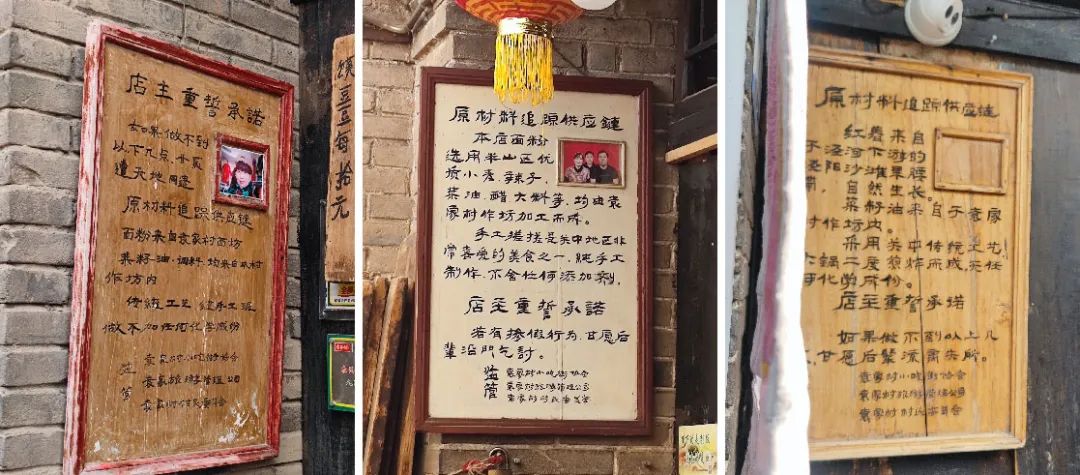 店主重誓承諾
如果做不到
以下几点,甘愿
遭天地同遣
原材料追踪供应鏈
面粉来自袁家村面坊
菜籽油、调料、均来自本村
作坊内
传統工艺、純手工
做不加任何化学成份
监管
袁家村小吃街协会
袁家旅游管理公司
袁家村村民委员会
馍豆豆每拾元
原材料追踪供应鏈
本店面粉
选用半山区优
质小麦、辣子、
菜油、醋大料等,均由袁
家村作坊加工而成。
手工搓搓是关中地区非
常喜爱的美食之一,純手工
制作,不含任何添加剂。
店主重誓承諾
若有掺假行为,甘愿后
輩沿門乞討。
监管
袁家村小吃街协会
袁家村旅游管理公司
袁家村村民委员会
原材料追踪供应鏈
红薯来自
于泾河下游的
泾阳沙滩果脾
,自然生长。
菜籽油来自于袁家
村作坊内。
采用关中传统工艺
大鍋二度煎炸而成,无任
何化学成份。
店主重誓承诺
如果做不到以上几
,甘愿后辈流离失所。
袁家村小吃街协会
袁家村旅游管理公司
袁家村村民委员会